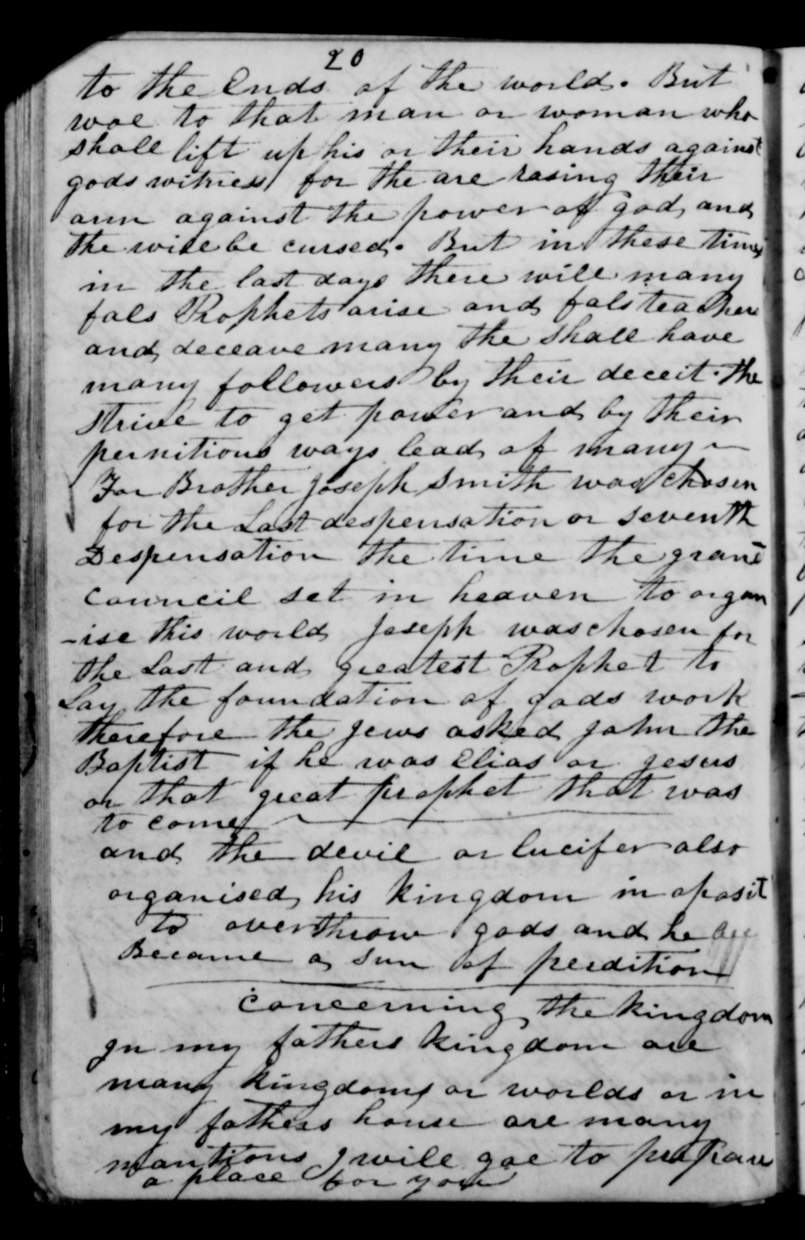 20
to the Ends of the world. But
woe to that man or woman who
shall lift up his or their hands against
gods witness for the are rasing their
arm against the power of god and
the will be cursed. But in these times
in the last days there will many
fals Prophets arise and fals teachers
and deceave many the shall have
many followers by their deceit. the
strive to get power and by their
pernitious ways lead of many
For Brother Joseph Smith was chosen
for the Last despensation or seventh
Despensation the time the grand
council set in heaven to organ
-ise this world Joseph was chosen for
the Last and greatest Prophet to
Lay the foundation of gods work
therefore the Jews asked John the
Baptist if he was Elias or Jesus
or that great prophet that was
to come
and the devil or lucifer also
organised his kingdom in oposit
to overthrow gods and he
Became a sun of perdition
Concerning the kingdom
In my fathers kingdom are
many kingdoms or worlds or in
my fathers house are many
mantions I will goe to prepare
a place for you